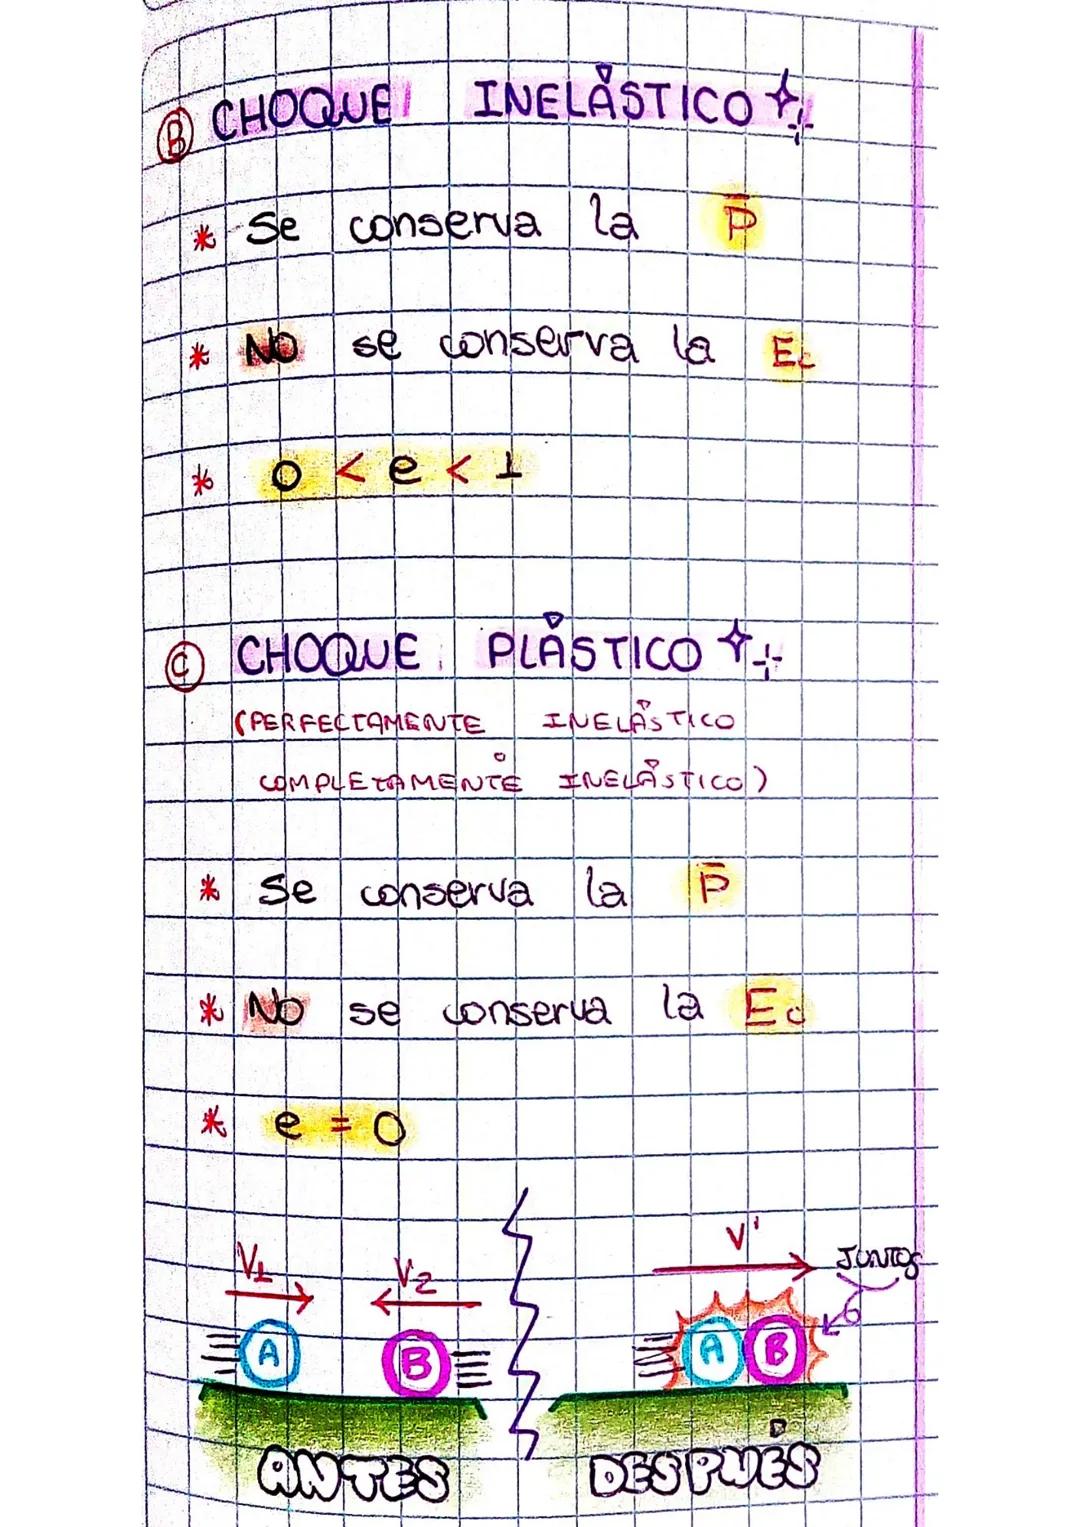 B CHOQUE INELÁSTICO
* Se conserva la P̅
* NO se conserva la Ec
* 0 < e < 1
C CHOQUE PLÁSTICO
(PERFECTAMENTE INELÁSTICO
o
COMPLETAMENTE INELÁSTICO)
* Se conserva la P̅
* No se conserva la Ec
* e = 0
V1 V2 V' JUNTOS
A B A B
ANTES DESPUÉS